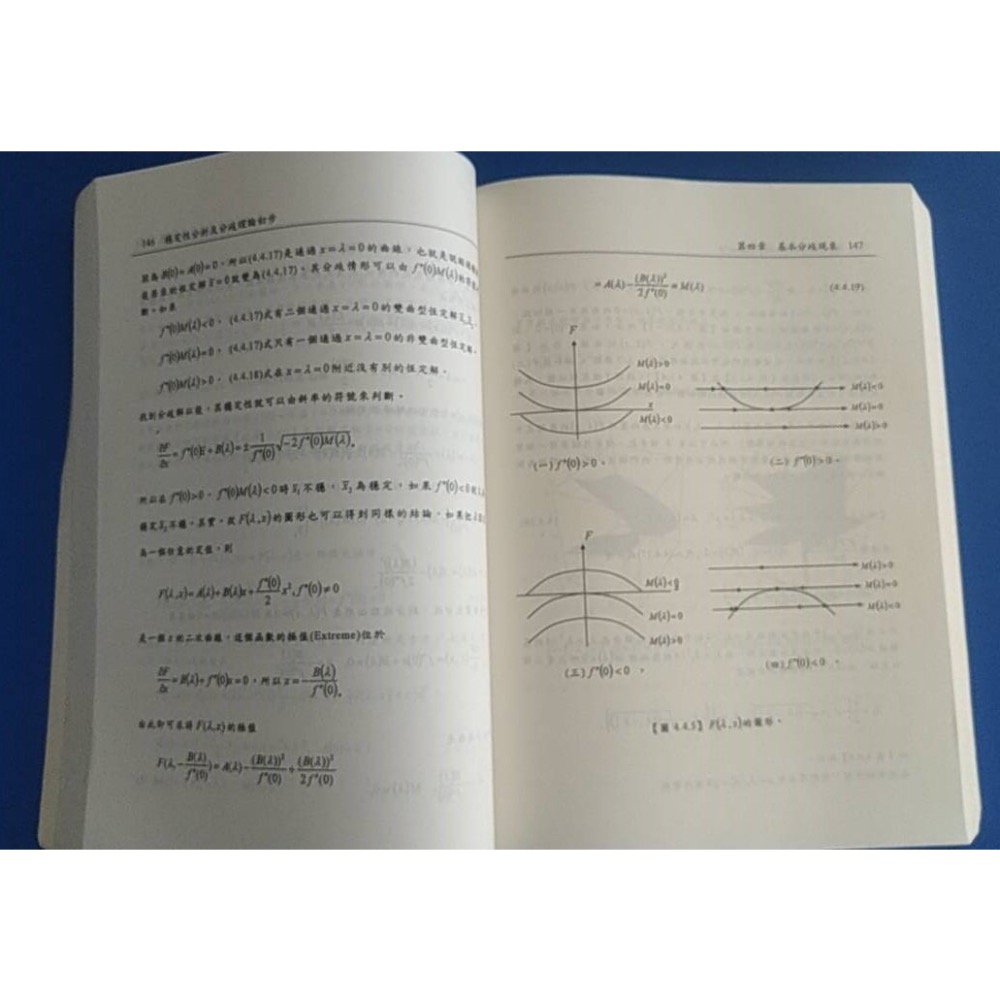 146 穩定性分析及分歧理論初步
因為 B(0)=A(0)=0,所以(4.4.17)是通過 x=λ=0的曲線,也就是說
x=0 (4.4.17)。其分歧情形可以由 f″(0)M(λ)
如果
f″(0)M(λ)<0, (4.4.17)式有二個通過 x=λ=0的雙曲型恒定解 x̄₁,x̄₂。
f″(0)M(λ)=0, (4.4.17)式只有一個通過 x=λ=0的非雙曲型恒定解。
f″(0)M(λ)>0, (4.4.18)式在 x=λ=0附近沒有別的恒定解。
找到分歧解以後,其穩定性就可以由斜率的符號來判斷。
∂F/∂x = f″(0)x̄+B(λ)=± 1/f″(0) √(-2f″(0)M(λ))。
所以在 f″(0)>0,f″(0)M(λ)<0時 x̄₁不穩,x̄₂為穩定,如果 f″(0)<0
穩定 x̄₂不穩。其實,從 F(λ,x)的圖形也可以得到同樣的結論。如果把 λ
為一個任意的定值,則
F(λ,x)=A(λ)+B(λ)x+ f″(0)/2 x²,f″(0)≠0
是一個 x 的二次曲線,這個函數的極值(Extreme)位於
∂F/∂x = B(λ)+f″(0)x=0,所以 x=- B(λ)/f″(0)。
由此即可求得 F(λ,x)的極值
F(λ,- B(λ)/f″(0))=A(λ)- (B(λ))²/f″(0) + (B(λ))²/2f″(0)
第四章 基本分歧現象 147
=A(λ)- (B(λ))²/2f″(0) ≡M(λ) (4.4.19)
F
M(λ)>0
M(λ)=0
x
M(λ)<0
(一) f″(0)>0。
M(λ)<0
M(λ)=0
M(λ)>0
(二) f″(0)>0。
F
M(λ)<0
M(λ)=0
M(λ)>0
(三) f″(0)<0 。
M(λ)>0
M(λ)=0
M(λ)<0
(四) f″(0)<0 。
【圖 4.4.5】 F(λ,x)的圖形。